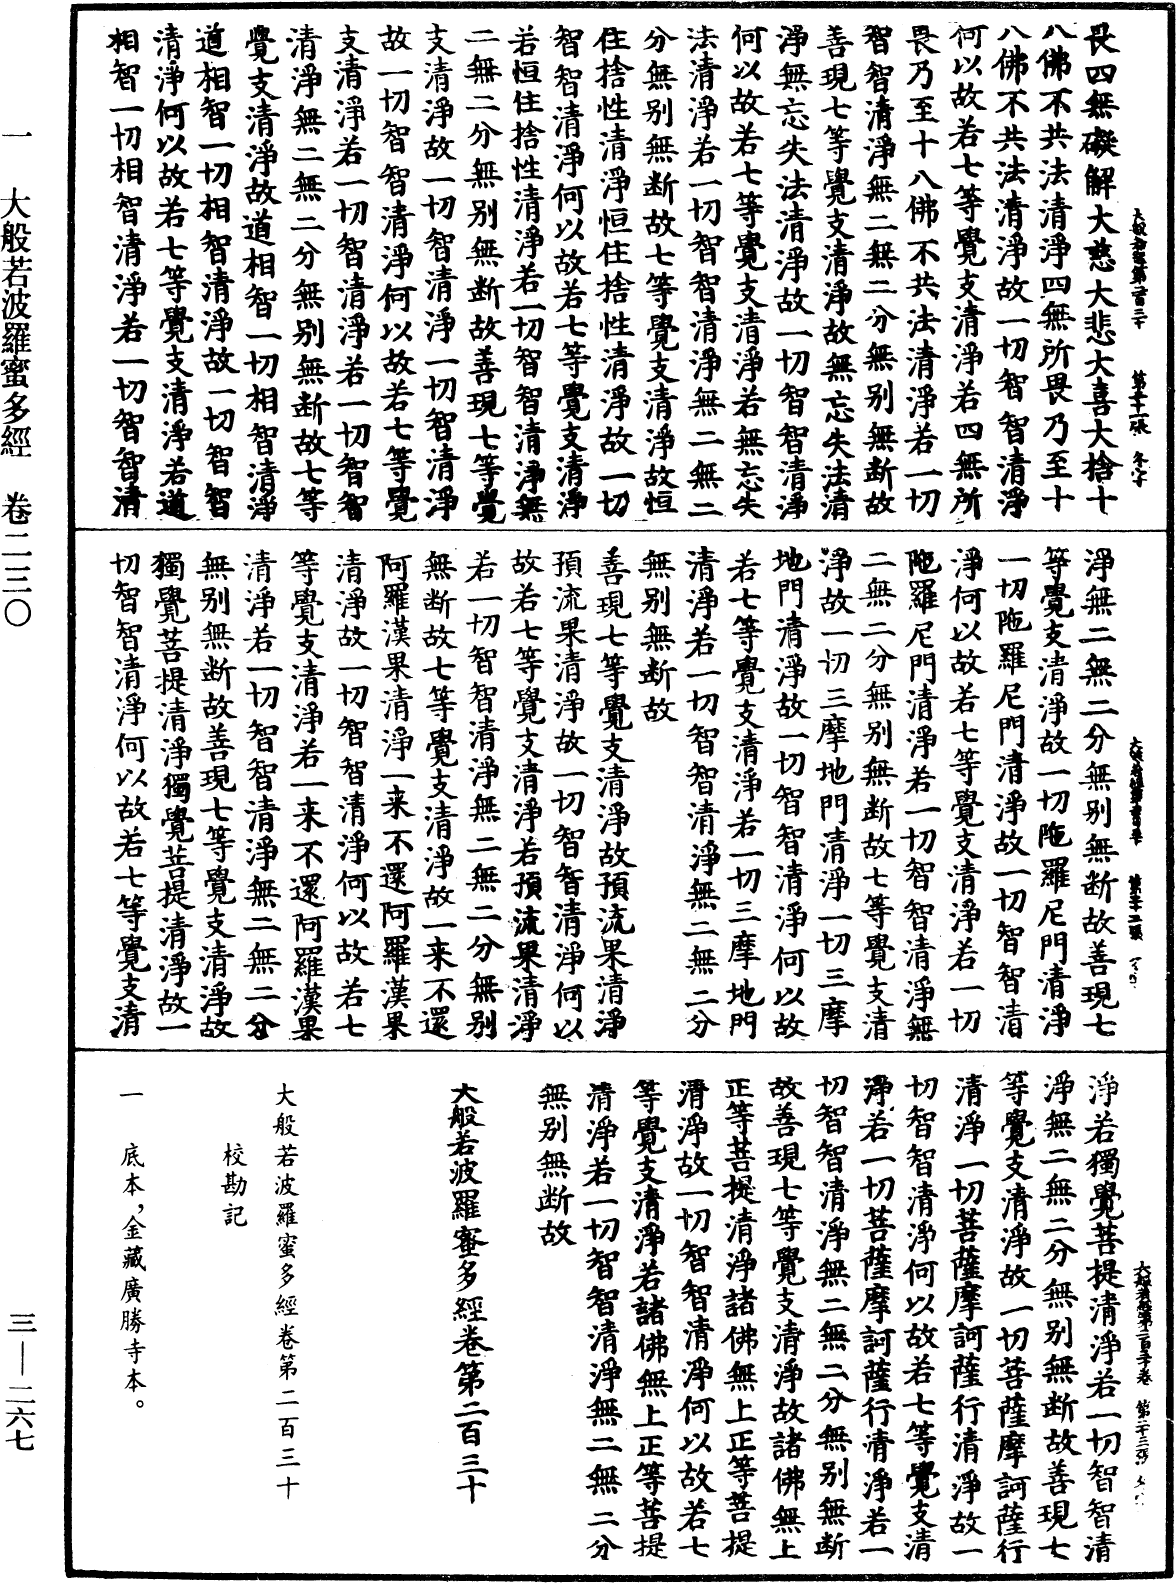 畏四無礙解大慈大悲大喜大捨十
八佛不共法清淨四無所畏乃至十
八佛不共法清淨故一切智智清淨
何以故若七等覺支清淨若四無所
畏乃至十八佛不共法清淨若一切
智智清淨無二無二分無別無斷故
善現七等覺支清淨故無忘失法清
淨無忘失法清淨故一切智智清淨
何以故若七等覺支清淨若無忘失
法清淨若一切智智清淨無二無二
分無別無斷故七等覺支清淨故恒
住捨性清淨恒住捨性清淨故一切
智智清淨何以故若七等覺支清淨
若恒住捨性清淨若一切智智清淨無
二無二分無別無斷故善現七等覺
支清淨故一切智清淨一切智清淨
故一切智智清淨何以故若七等覺
支清淨若一切智清淨若一切智智
清淨無二無二分無別無斷故七等
覺支清淨故道相智一切相智清淨
道相智一切相智清淨故一切智智
清淨何以故若七等覺支清淨若道
相智一切相智清淨若一切智智清
淨無二無二分無別無斷故善現七
等覺支清淨故一切陁羅尼門清淨
一切陁羅尼門清淨故一切智智清
淨何以故若七等覺支清淨若一切
陁羅尼門清淨若一切智智清淨無
二無二分無別無斷故七等覺支清
淨故一切三摩地門清淨一切三摩
地門清淨故一切智智清淨何以故
若七等覺支清淨若一切三摩地門
清淨若一切智智清淨無二無二分
無別無斷故
善現七等覺支清淨故預流果清淨
預流果清淨故一切智智清淨何以
故若七等覺支清淨若預流果清淨
若一切智智清淨無二無二分無別
無斷故七等覺支清淨故一来不還
阿羅漢果清淨一来不還阿羅漢果
清淨故一切智智清淨何以故若七
等覺支清淨若一来不還阿羅漢果
清淨若一切智智清淨無二無二分
無別無斷故善現七等覺支清淨故
獨覺菩提清淨獨覺菩提清淨故一
切智智清淨何以故若七等覺支清
淨若獨覺菩提清淨若一切智智清
淨無二無二分無別無斷故善現七
等覺支清淨故一切菩薩摩訶薩行
清淨一切菩薩摩訶薩行清淨故一
切智智清淨何以故若七等覺支清
淨若一切菩薩摩訶薩行清淨若一
切智智清淨無二無二分無別無斷
故善現七等覺支清淨故諸佛無上
正等菩提清淨諸佛無上正等菩提
清淨故一切智智清淨何以故若七
等覺支清淨若諸佛無上正等菩提
清淨若一切智智清淨無二無二分
無別無斷故
大般若波羅蜜多經卷第二百三十
大般若波羅蜜多經卷第二百三十
校勘記
一 底本，金藏廣勝寺本。
一 大般若波羅蜜多經 卷二三〇
三—二六七